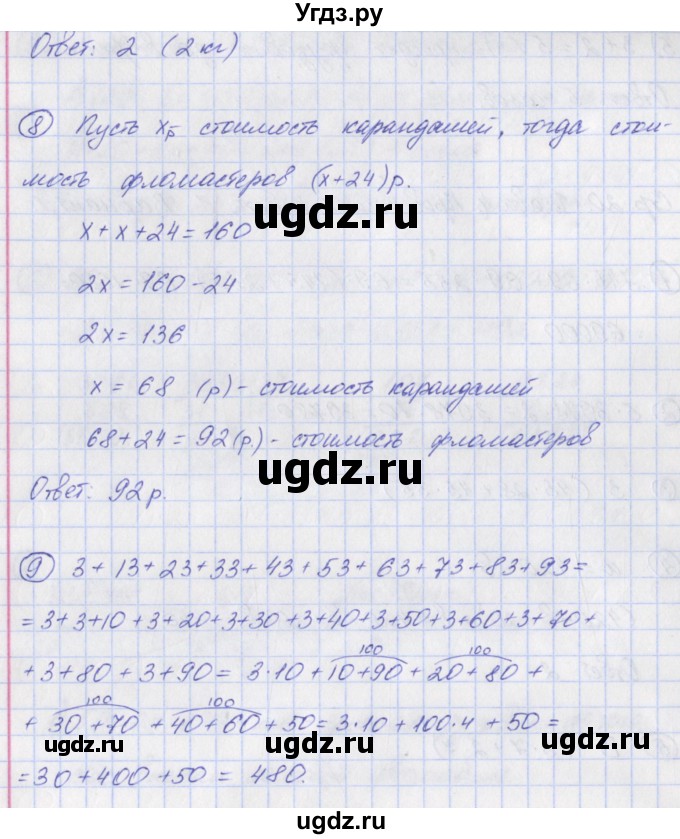 Угдз.ру
Ответ: 2 (2 кг)
8 Пусть x р – стоимость карандашей, тогда стои-
мость фломастеров (x+24) р.
ugdz.ru
x + x + 24 = 160
2x = 160 - 24
2x = 136
x = 68 (р) - стоимость карандашей
68 + 24 = 92 (р.) - стоимость фломастеров
ugdz.ru
Ответ: 92 р.
9 3 + 13 + 23 + 33 + 43 + 53 + 63 + 73 + 83 + 93 =
= 3 + 3 + 10 + 3 + 20 + 3 + 30 + 3 + 40 + 3 + 50 + 3 + 60 + 3 + 70 +
100 100
+ 3 + 80 + 3 + 90 = 3·10 + 10 + 90 + 20 + 80 +
100 100
+ 30 + 70 + 40 + 60 + 50 = 3·10 + 100·4 + 50 =
ugdz.ru
= 30 + 400 + 50 = 480.
ugdz.ru